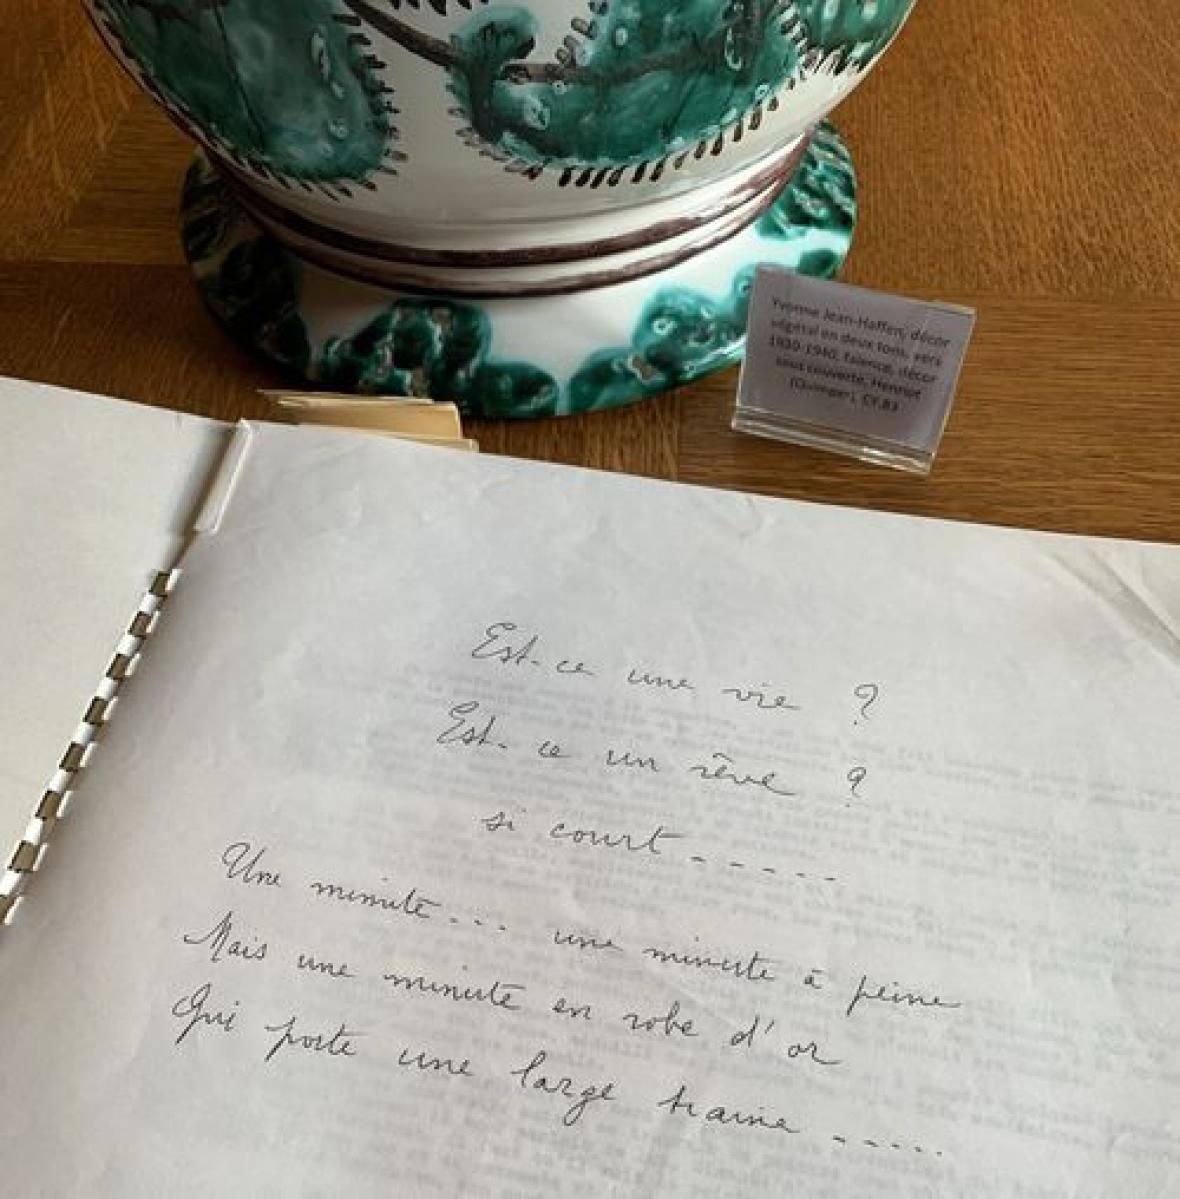 Yvonne Jean-Haffen, décor
végétal en deux tons, vers
1930-1940, faïence, décor
sous couverte, Henriot
(Quimper), CY.83
Est-ce une vie ?
Est-ce un rêve ?
si court - - - - -
Une minute... une minute à peine
Mais une minute en robe d'or
Qui porte une large traine - - - - -